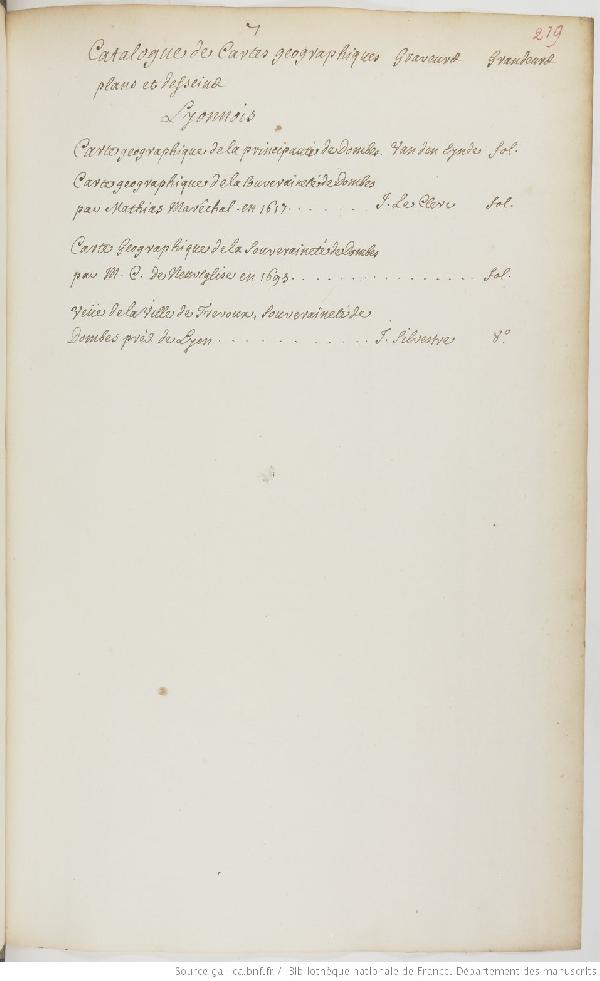 7
219
Catalogue de Cartes geographiques Graveurs Grandeurs
plans et desseins
Lyonnois
Carte geographique de la principauté de Dombes. Van den Eynde fol.
Carte geographique de la Souveraineté de Dombes
par Mathias Maréchal en 1617. . . . . . . . J. Le Clerc fol.
Carte Geographique de la Souveraineté de Dombes
par M. C. de Neuveglise en 1693. . . . . . . . . . . . . . . . . . fol.
Veüe de la Ville de Trevoux, Souveraineté de
Dombes prés de Lyon . . . . . . . . . . . . J. Silvestre 8°
Source gallica.bnf.fr / Bibliothèque nationale de France. Département des manuscrits.